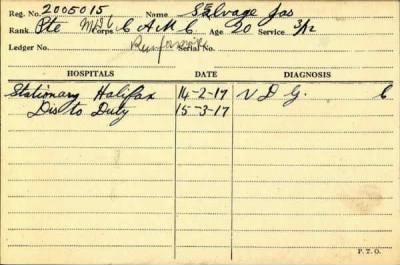 Reg. No. 2005015 Name Salvage Jas
Rank Pte Corps C A M C Age 20 Service 3/12
Ledger No. Serial No.
HOSPITALS DATE DIAGNOSIS
Stationary Halifax 14-2-17 V D G. C
Dis to Duty 15-3-17
P. T. O.